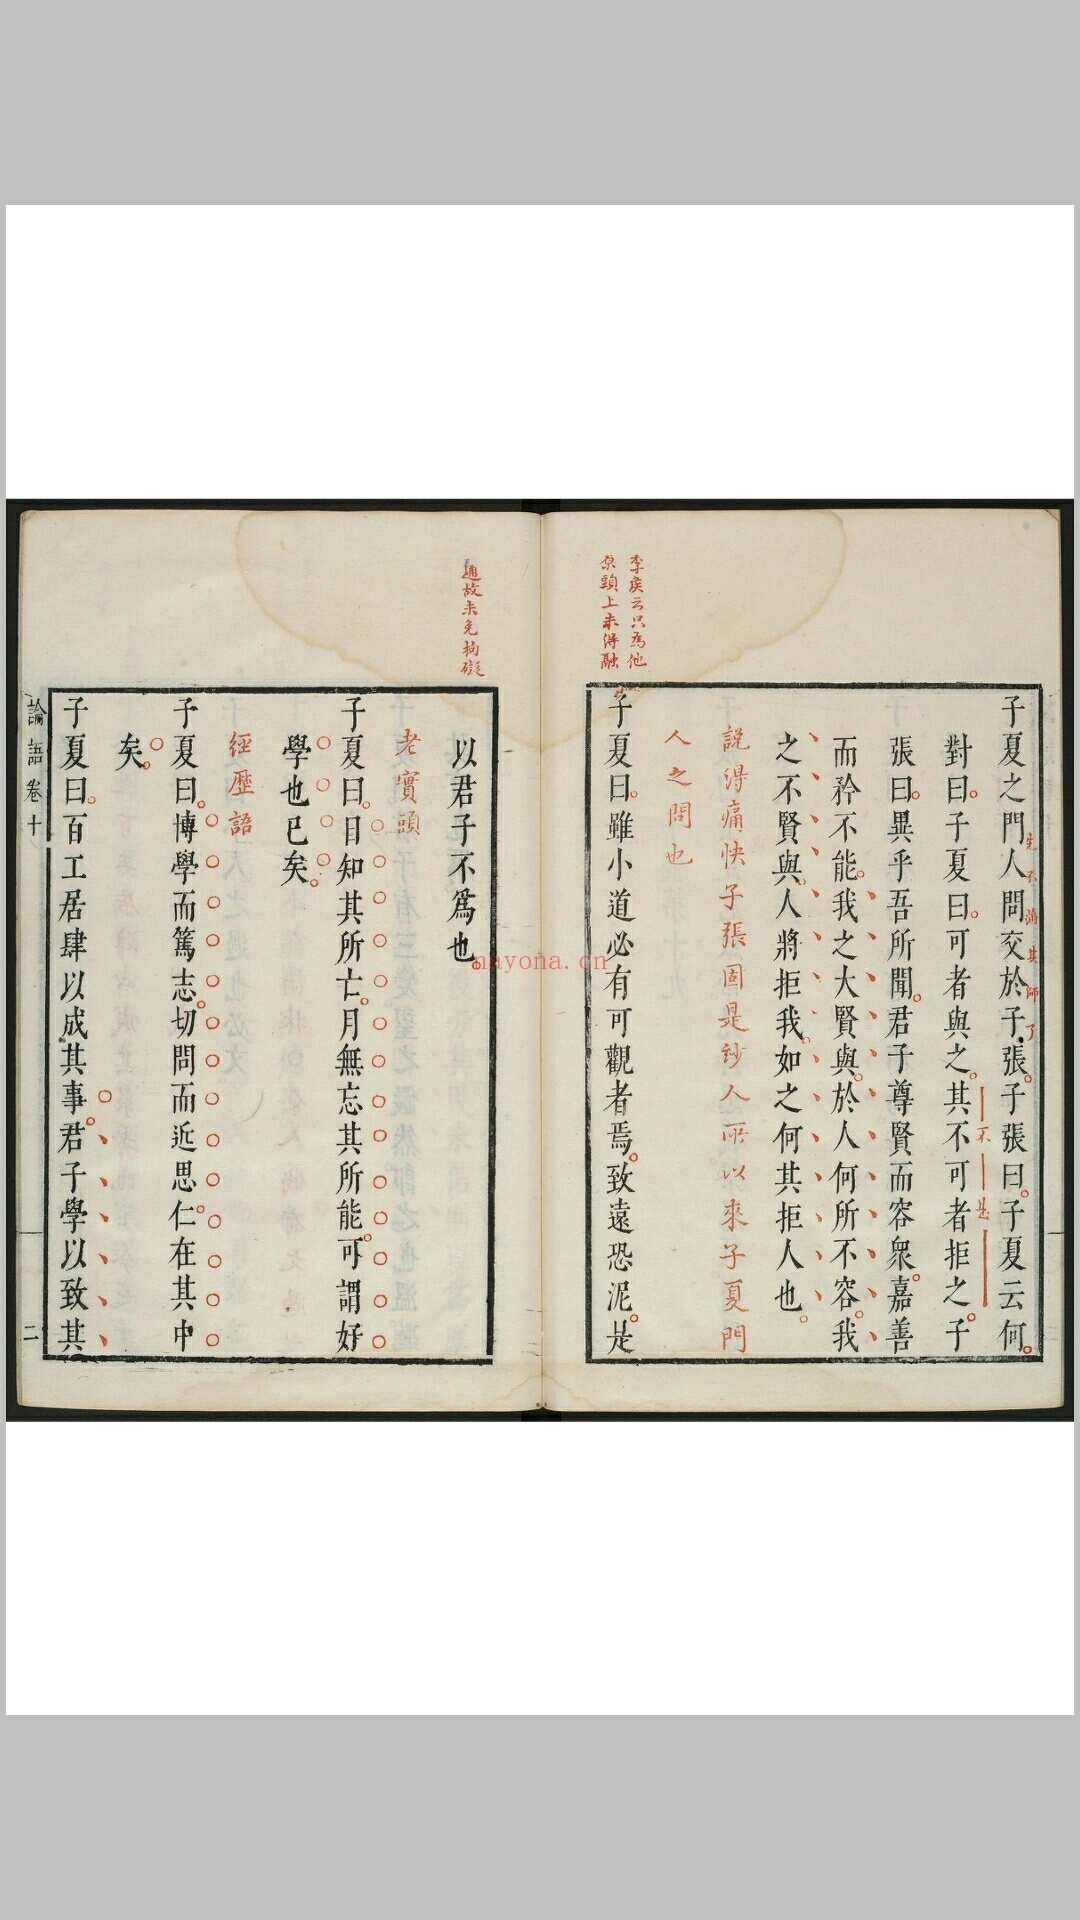 李侯云只為他
原頭上未得融
子夏之門人問交於子張子張曰子夏云何
先不滿其師了
對曰子夏曰可者與之其不可者拒之子
不是
張曰異乎吾所聞君子尊賢而容衆嘉善
而矜不能我之大賢與於人何所不容我
之不賢與人將拒我如之何其拒人也
說得痛快子張固是妙人所以來子夏門
人之問也
子夏曰雖小道必有可觀者焉致遠恐泥是
通故未免拘礙
以君子不爲也
老實頭
子夏曰日知其所亡月無忘其所能可謂好
學也已矣
經歷語
子夏曰博學而篤志切問而近思仁在其中
矣
子夏曰百工居肆以成其事君子學以致其
論語卷十
二
nayona.cn